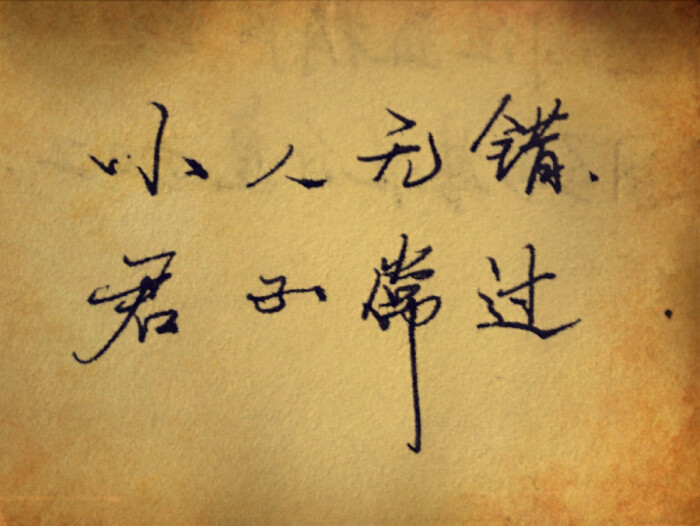 小人无错.
君子常过.